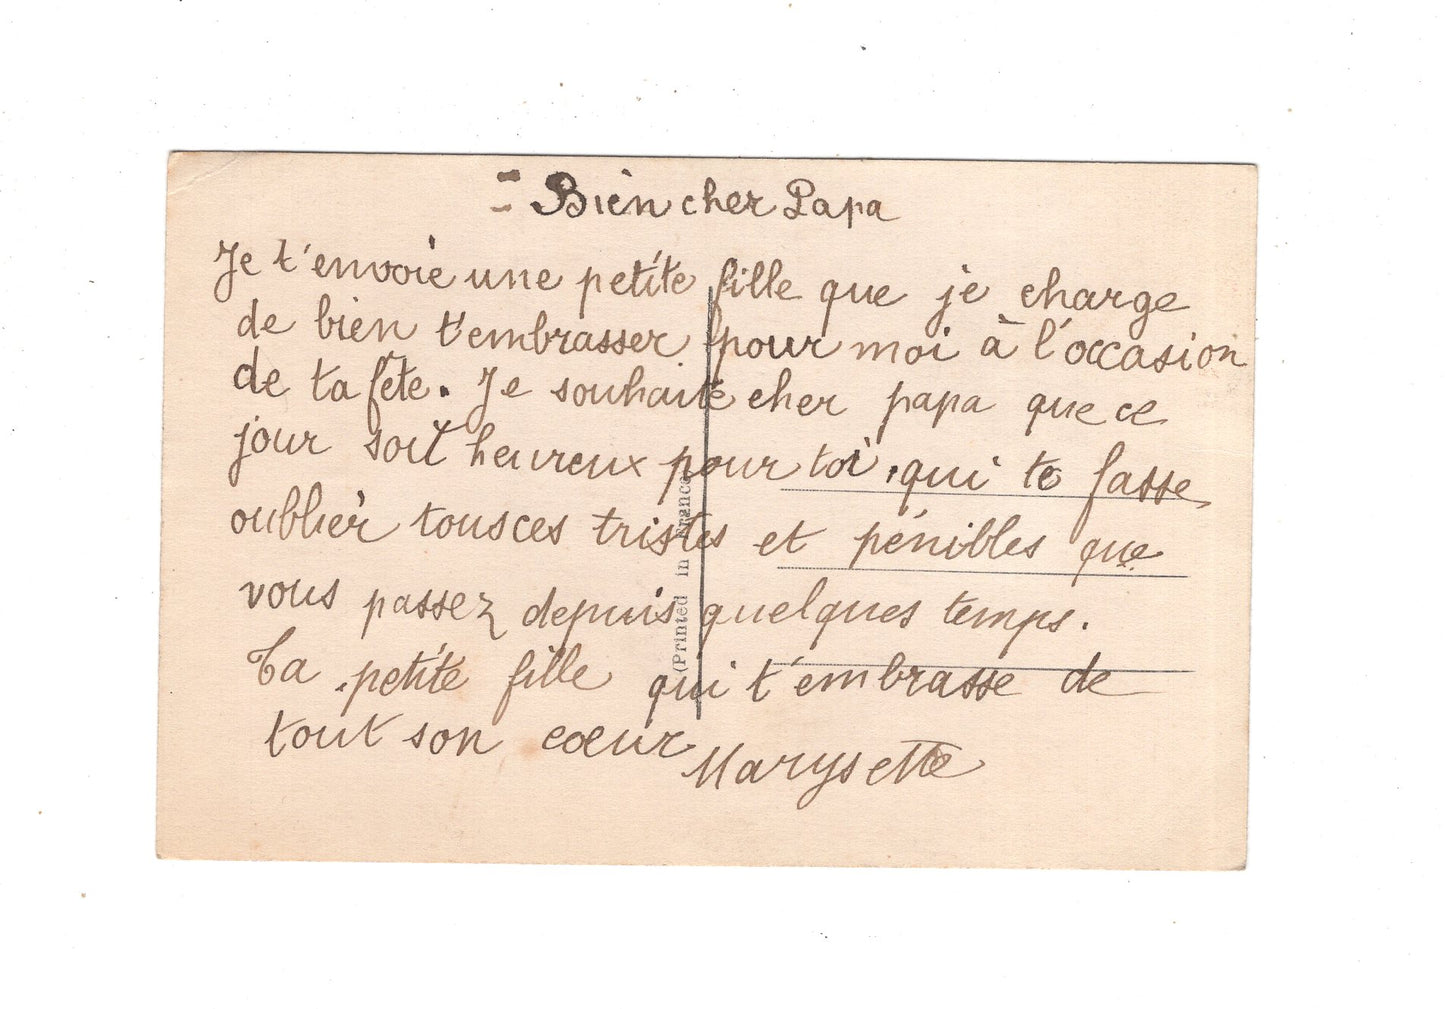 Bien cher Papa
Je t'envoie une petite fille que je charge
de bien t'embrasser pour moi à l'occasion
de ta fête. Je souhaite cher papa que ce
jour soit heureux pour toi, qui te fasse
oublier tous ces tristes et pénibles que
vous passez depuis quelques temps.
Ta petite fille qui t'embrasse de
tout son cœur
Marysette
(Printed in France